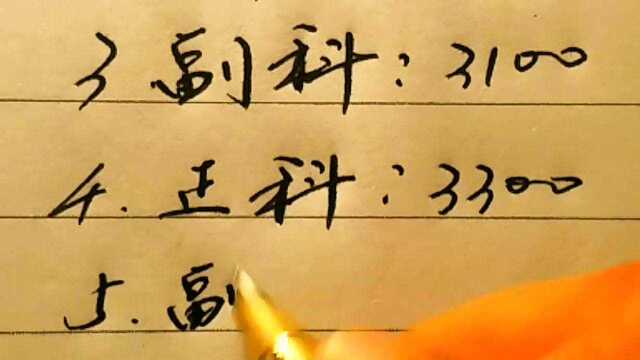 3 副科：3100
4. 正科：3300
5. 副